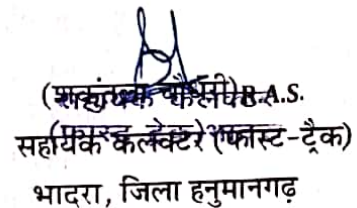 (शकुंतला चौधरी) R.A.S.
सहायक कलेक्टर (फास्ट-ट्रैक)
भादरा, जिला हनुमानगढ़